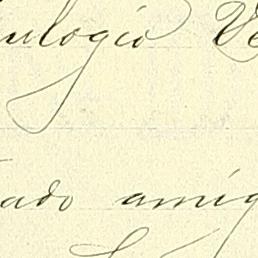 ulogio Ve
ado amig